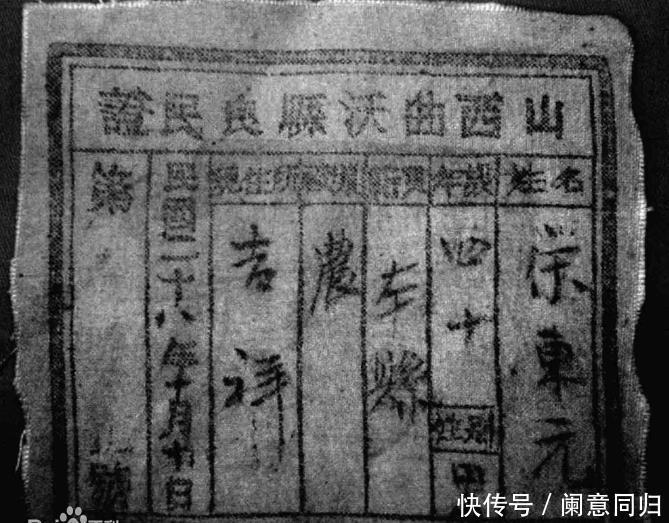 山西曲沃縣良民證
姓名
榮東元
年歲
四十
性別
男
籍貫
本縣
職業
農
現住所
吉祥
民國二十八年十月十日
第
號
快传号 / 阑意同归
Bai 百科